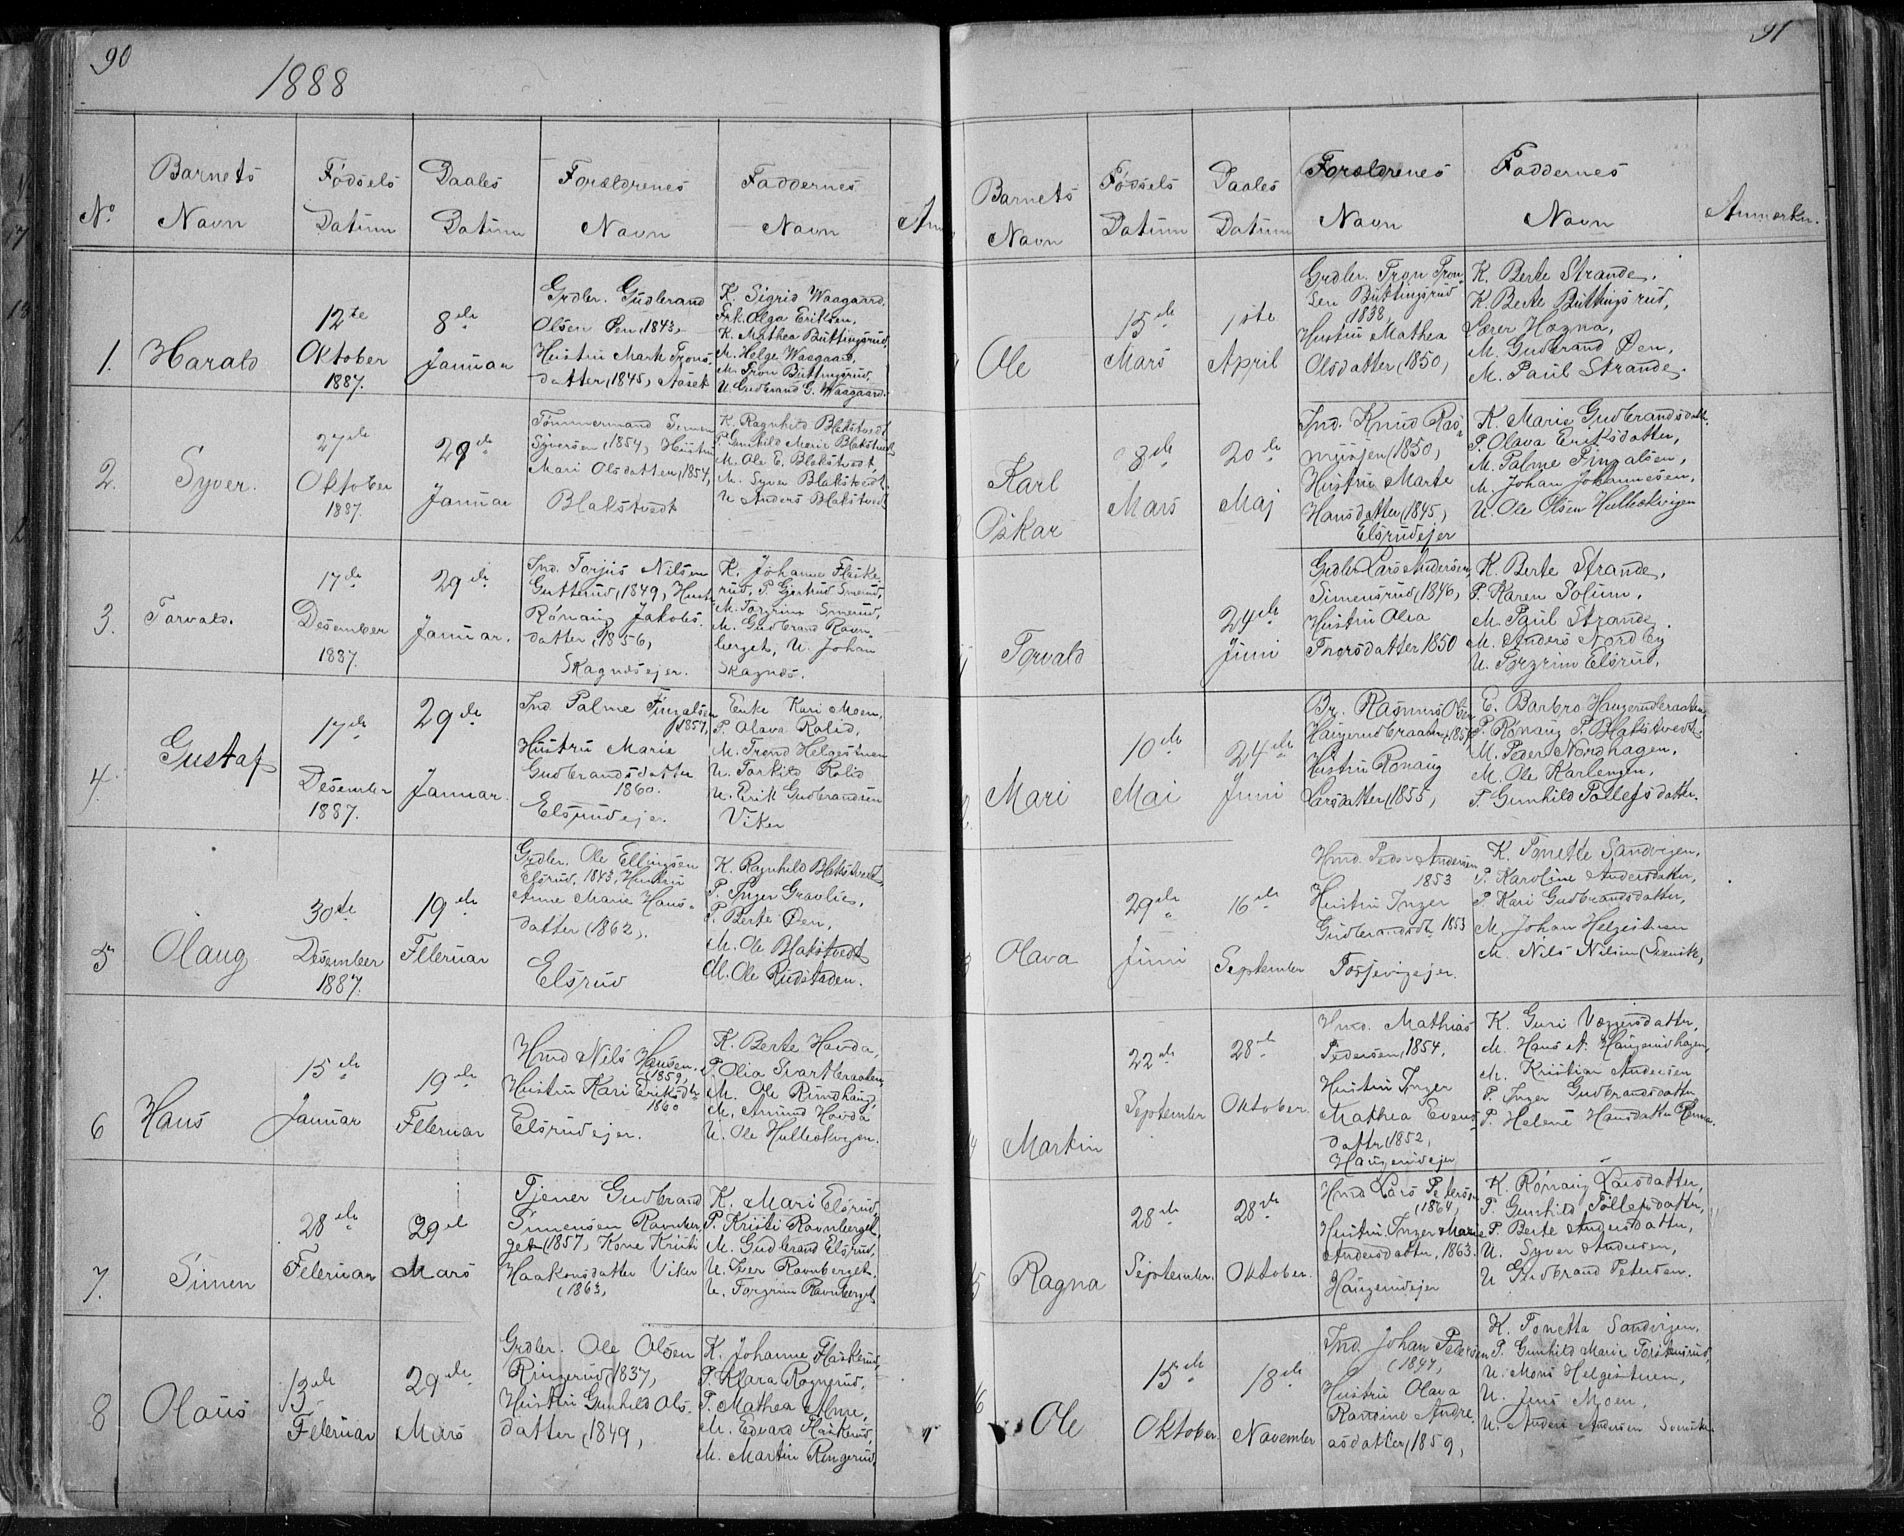 90
1888
No
Barnets
Navn
Fødsels
Datum
Daabs
Datum
Forældrenes
Navn
Faddernes
Navn
Anm
1.
Harald
12te
Oktober
1887.
8de
Januar
Grdbr. Gudbrand
Olsen Øen, 1843,
Hustru Marte Trons-
datter, 1845, Aaset
K. Sigrid Waagaard,
Frk. Olga Eriksen,
K. Mathea Buttingsrud,
M. Helge Waagaard,
M. Tron Buttingsrud,
U. Gudbrand G. Waagaard.
2.
Syver.
27de
Oktober
1887.
29de
Januar
Tømmermand Simen
Syversen, 1854, Hustru
Mari Olsdatter, 1854,
Blakstvedt
K. Ragnhild Blakstvedt,
P. Gunhild Marie Blakstvedt,
M. Ole E. Blakstvedt,
M. Syver Blakstvedt,
U. Anders Blakstvedt
3.
Torvald.
17de
Desember
1887.
29de
Januar.
Ind. Torjus Nilsen
Guttsrud, 1849, Hust
Rønaug Jakobs-
datter, 1856,
Skagnæsejer.
K. Johanne Flaske-
rud, P. Gjertrud Smerud,
M. Torgrim Smerud,
M. Gudbrand Ravn-
berget, U. Johan
Skagnæs.
4.
Gustaf
17de
Desember
1887.
29de
Januar.
Ind. Palme Fingalsen
1857,
Hustru Marie
Gudbrandsdatter
1860.
Elsrudejer.
Enke Kari Moen,
P. Olava Rolid,
M. Trond Helgestuen
U. Torkild Rolid
U. Erik Gudbrandsen
Viker
5
Olaug
30te
Desember
1887.
19de
Februar
Grdbr. Ole Ellingsen
Elsrud, 1843, Hustru
Anne Marie Hans-
datter, 1862,
Elsrud
K. Ragnhild Blakstvedt,
P. Inger Gravlie,
P. Berte Øen,
M. Ole Blakstvedt
M. Ole Rudstaden.
6
Hans
15de
Januar
19de
Februar
Hmd Nils Hansen
1859,
Hustru Kari Eriksdtr
1860
Elsrudejer.
K. Berte Hovda,
P. Olia Svartbraaten,
M. Ole Rundhaug,
M. Amund Hovda
U. Ole Hullekvigen.
7.
Simen
28de
Februar
29de
Mars
Tjener Gudbrand
Simensen Ravnber
get, 1857, Kone Kristi
Haakonsdatter Viker
1863,
K. Mari Elsrud,
P. Kristi Ravnberget,
M. Gudbrand Elsrud,
U. Iver Ravnberget.
U. Torgrim Ravnberget
8
Olaus
13de
Februar
29de
Mars
Grdbr. Ole Olsen
Ringerud, 1837,
Hustru Gunhild Ols-
datter, 1849,
K. Johanne Flaskerud,
P. Klara Ragnrud,
P. Mathea Alme,
M. Edvard Flaskerud,
M. Martin Ringerud,
91
Barnets
Navn
Fødsels
Datum
Daabs
Datum
Forældrenes
Navn
Faddernes
Navn
Anmærkn.
Ole
15de
Mars
1ste
April
Grdbr. Tron Tron-
sen Buttingsrud
1838,
Hustru Mathea
Olsdatter, 1850,
K. Berte Strande,
K. Berte Buttingsrud,
Lærer Hagna,
M. Gudbrand Øen,
M. Paul Strande.
Karl
Oskar
8de
Mars
20de
Maj
Ind. Knud Ras-
musen, 1850,
Hustru Marte
Hansdatter, 1845,
Elsrudejer
K. Marie Gudbrandsdatt.
P. Olava Eriksdatter,
M. Palme Fingalsen,
M. Johan Johannesen,
U. Ole Olsen Hullekvigen
Torvald
24de
Juni
Grdbr Lars Andersen,
Simensrud, 1846,
Hustru Olia
Tronsdatter 1850
K. Berte Strande,
P. Karen Solum,
M. Paul Strande,
M. Anders Nordby
U. Torgrim Elsrud,
Mari
10de
Mai
24de
Juni
Br. Rasmus Olsen
Haugerudbraaten,
Hustru Rønaug
Larsdatter, 1855,
E. Barbro Haugerudbraaten
P. Rønaug P. Blakstvedt,
M. Peder Nordhagen,
M. Ole Karlengen,
P. Gunhild Tollefsdatter.
Olava
29de
Juni
16de
September
Hmd. Peder Andersen
1853
Hustru Inger
Gudbrandsdt. 1853
Torjevigejer.
K. Tonette Sandvigen,
P. Karoline Andersdatter,
P. Kari Gudbrandsdatter,
M. Johan Helgestuen
M. Nils Nilsen (Svensk,
Martin
22de
September
28de
Oktober.
Hmd. Mathias
Pedersen, 1854,
Hustru Inger
Mathea Evens-
datter, 1852,
Haugerudejer
K. Guri
M. Hans N. Haugerudhagen,
M. Kristian Andersen
P. Inger Gudbrandsdatter
P. Helene Hansdatter
Ragna
28de
September.
28de
Oktober.
Hmd Lars Petersen
1864,
Hustru Inger Marie
Andersdatter, 1863.
Haugerudejer
K. Rønaug Larsdatter,
P. Gunhild Tollefsdatter,
P. Berte Andersdatter,
U. Syver Andersen,
U Gudbrand Petersen.
Ole
15de
Oktober
18de
November
Ind. Johan Pedersen
1847,
Hustru Olava
Randine Andre-
asdatter, 1859,
K. Tonetta Sandvigen,
P. Gunhild Marie
U. Mons Helgestuen,
U. Jens Moen,
U. Anders Andersen Svensk.